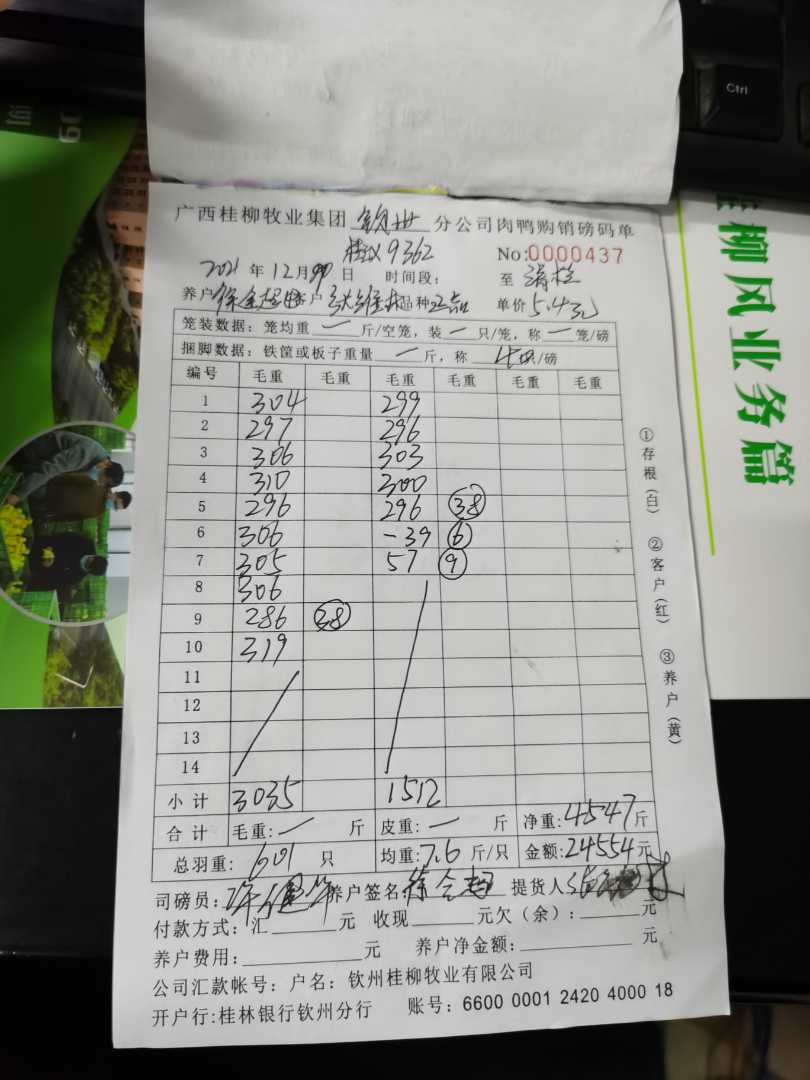 Ctrl
09
柳风业务篇
广西桂柳牧业集团 钦州 分公司肉鸭购销磅码单
9362
No:0000437
2021 年 12月 日 时间段: 至
养户 徐全超 客户 品种 正品 单价 5.4元
笼装数据: 笼均重 一 斤/空笼, 装 一 只/笼, 称 一 笼/磅
捆脚数据: 铁筐或板子重量 一 斤, 称 /磅
编号 毛重 毛重 毛重 毛重 毛重 毛重
1 304 299
2 297 296
3 306 303
4 310 300
5 296 296 38
6 306 -39 6
7 305 57 9
8 306
9 286 38
10 319
11
12
13
14
小计 3035 1512
合计 毛重: 一 斤 皮重: 一 斤 净重: 4547 斤
总羽重: 601 只 均重: 7.6 斤/只 金额: 24554 元
司磅员: 养户签名: 徐全超 提货人:
付款方式: 汇 元 收现 元 欠(余): 元
养户费用: 元 养户净金额: 元
公司汇款帐号: 户名: 钦州桂柳牧业有限公司
开户行:桂林银行钦州分行 账号: 6600 0001 2420 4000 18
①存根(白) ②客户(红) ③养户(黄)